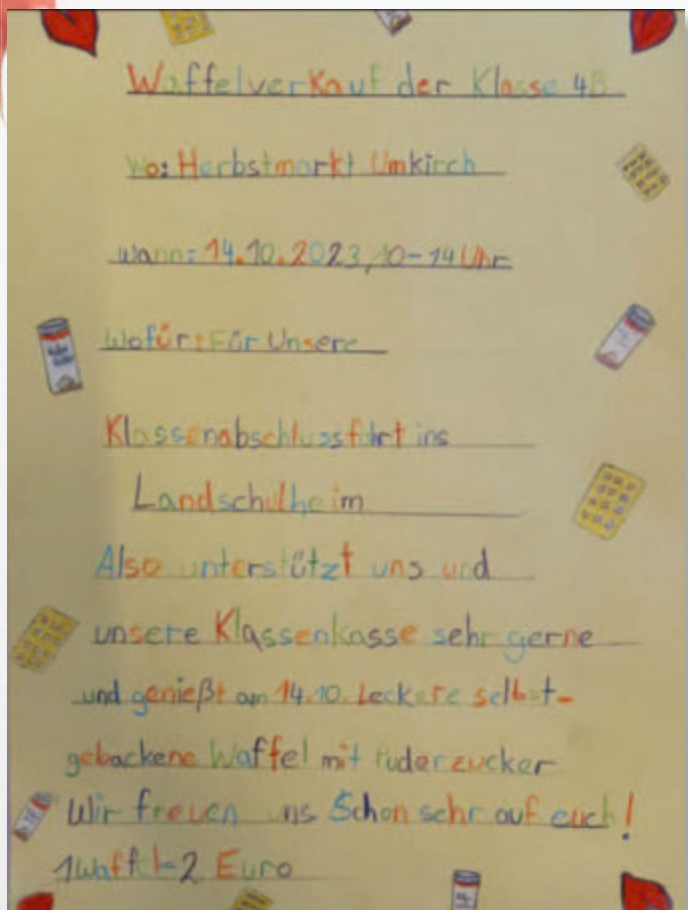 Waffelverkauf der Klasse 4B
Wo: Herbstmarkt Umkirch
Wann: 14.10.2023, 10-14 Uhr
Wofür: Für Unsere
Klassenabschlussfahrt ins
Landschulheim
Also unterstützt uns und
unsere Klassenkasse sehr gerne
und genießt am 14.10. Leckere selbst-
gebackene Waffel mit Puderzucker
Wir freuen uns Schon sehr auf euch!
1 Waffel=2 Euro